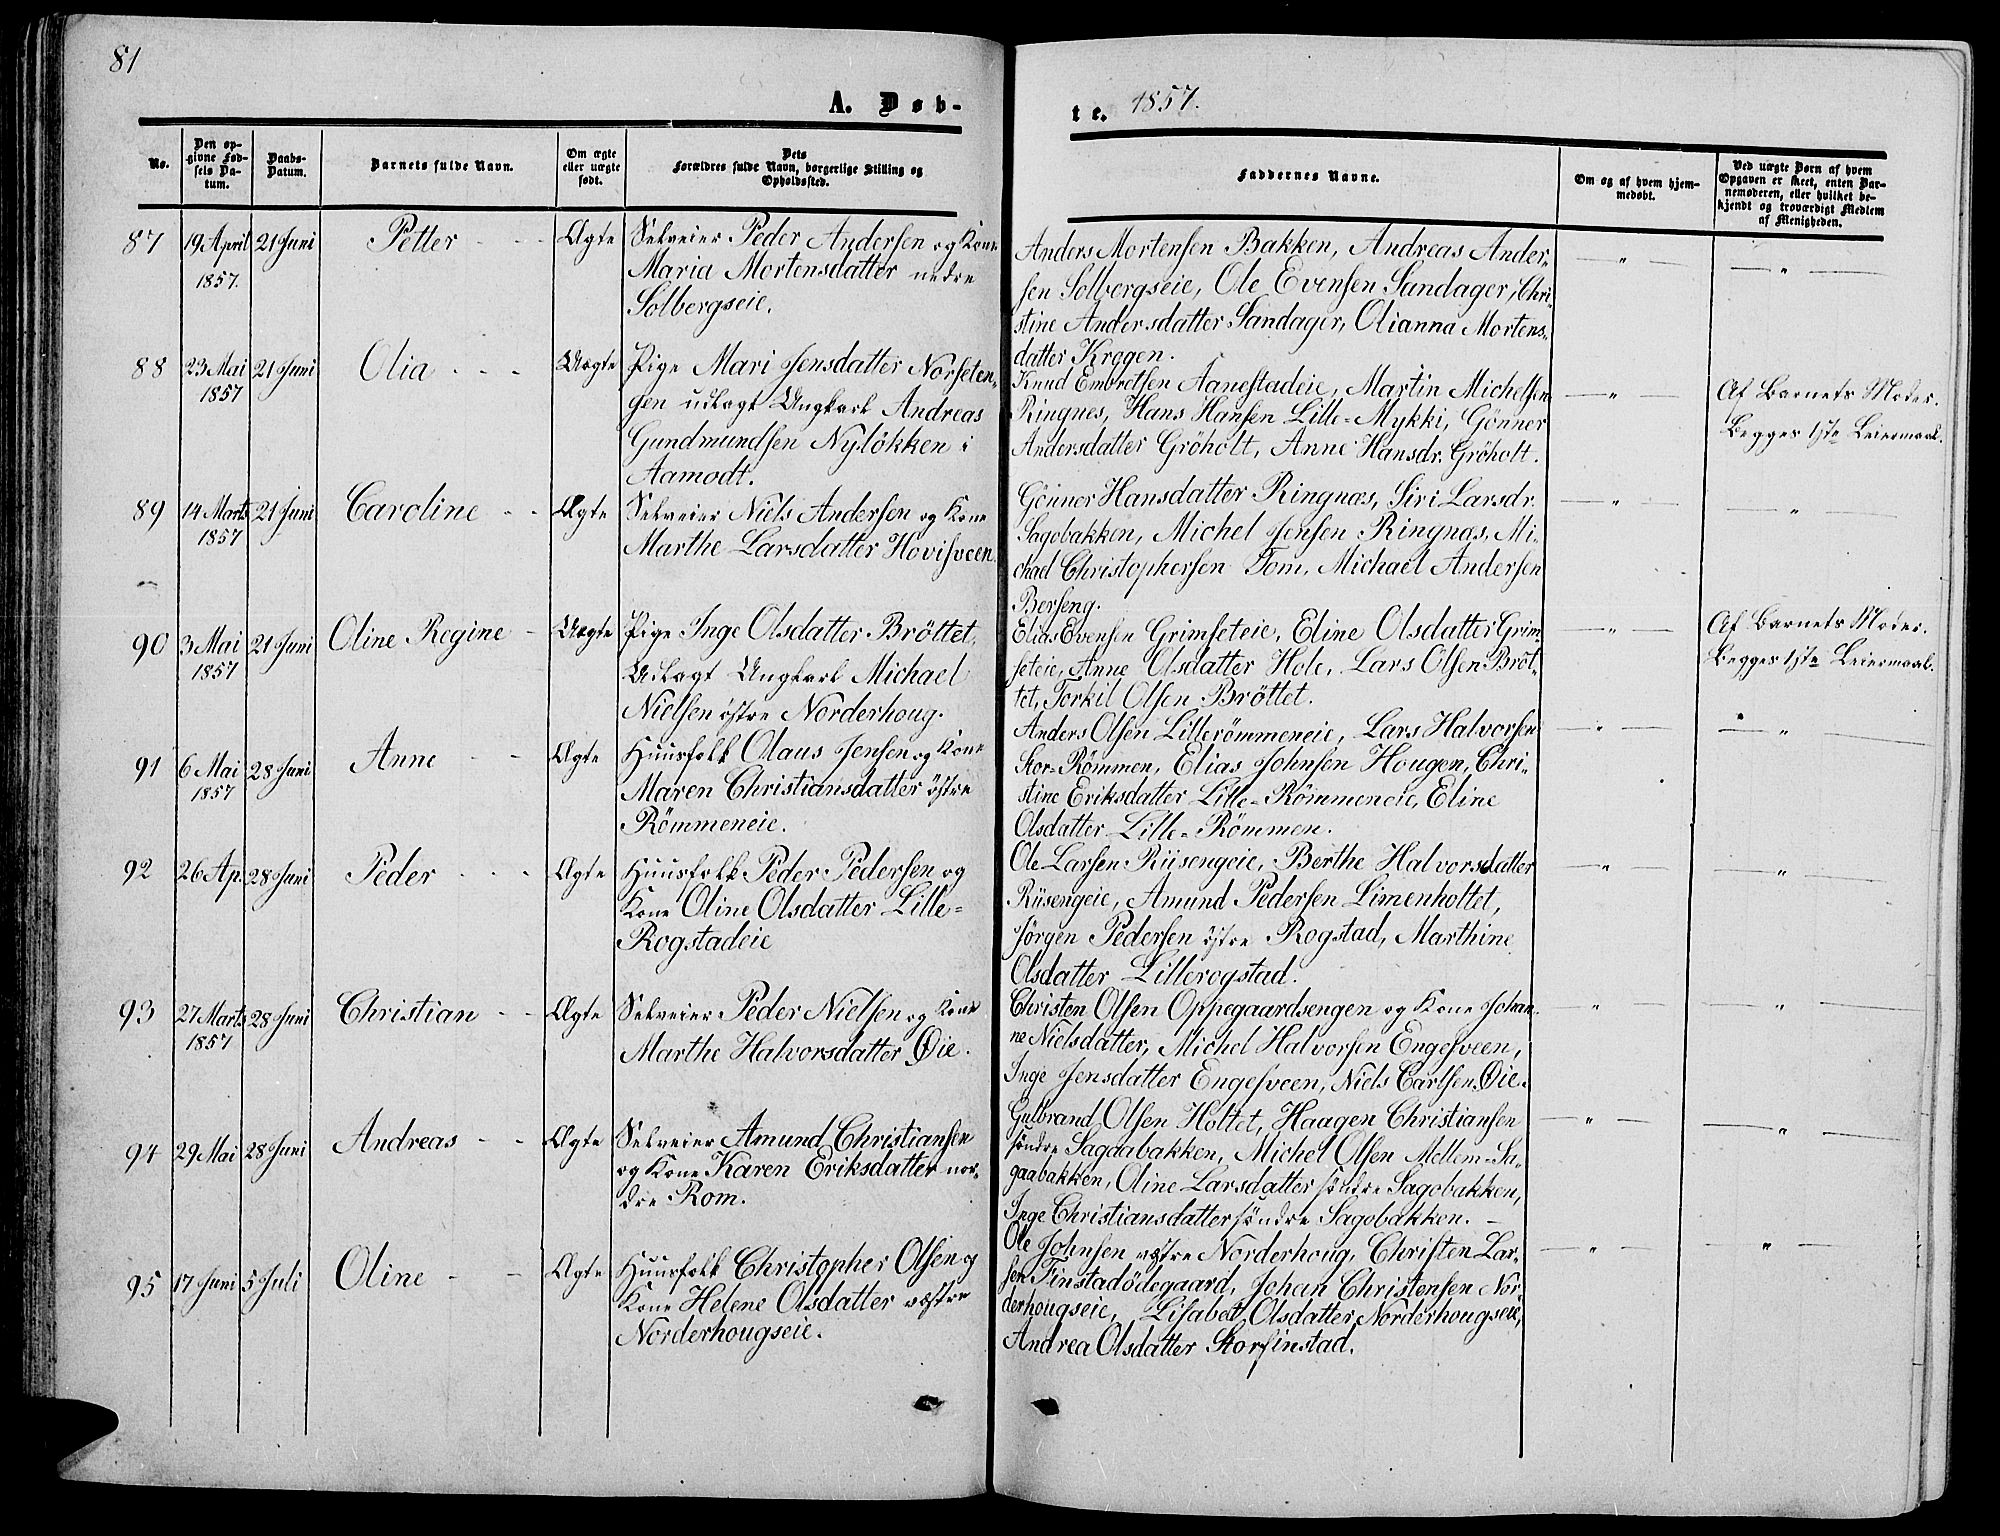 81
A. Døb-
te. 1857.
No.
Den op-
givne Fød-
sels Da-
tum.
Daabs-
Datum.
Barnets fulde Navn.
Om ægte
eller uægte
født.
Dets
Forældres fulde Navn, borgerlige Stilling og
Opholdssted.
Faddernes Navne.
Om og af hvem hjem-
medøbt.
Ved uægte Børn af hvem
Opgaven er skeet, enten Bar-
nemoderen, eller hvilket be-
kjendt og troværdigt Medlem
af Menigheden.
87 19 April 21 Juni Petter - - - Ægte Selveier Peder Andersen og Kone
1857. Maria Mortensdatter nedre
Solbergseie.
Anders Mortensen Bakken, Andreas Ander-
sen Solbergseie, Ole Evensen Sandager, Chri-
stine Andersdatter Sandager, Olianna Mortens-
datter Krogen.
— " —
— " —
88 23 Mai 21 Juni Olia - - - Uægte Pige Mari Jensdatter Norseten-
1857 sen udlagt Ungkarl Andreas
Gundmundsen Nylökken i
Aamodt.
Knud Embretsen Aanestadeie, Martin Michelsen
Ringnes, Hans Hansen Lille-Mykki, Gönner
Andersdatter Gröholt, Anne Hansdr. Gröholt.
— " —
Af Barnets Moder.
Begges 1ste Leiermaal.
89 14 Marts 21 Juni Caroline - - Ægte Selveier Niels Andersen og Kone
1857 Marthe Larsdatter Hovisveen.
Gönner Hansdatter Ringnæs, Siri Larsdr.
Sagobakken, Michel Jensen Ringnæs, Mi-
chael Christophersen Tom, Michael Andersen
Berseng.
— " —
— " —
90 3 Mai 21 Juni Oline Regine - Uægte Pige Inge Olsdatter Bröttet,
1857 Udlagt Ungkarl Michael
Nielsen östre Norderhoug.
Elias Evensen Grimseteie, Eline Olsdatter Grim-
seteie, Anne Olsdatter Hole, Lars Olsen Bröt-
tet, Torkil Olsen Bröttet.
— " —
Af Barnets Moder.
Begges 1ste Leiermaal.
91 6 Mai 28 Juni Anne - - Ægte Huusfolk Olaus Jensen og Kone
1857 Maren Christiansdatter östre
Römmeneie.
Anders Olsen Lillerömmeneie, Lars Halvorsen
Stor-Römmen, Elias Johnsen Hougen, Chri-
stine Eriksdatter Lille-Römmeneie, Eline
Olsdatter Lille-Römmen.
— " —
— " —
92 26 Ap. 28 Juni Peder - - - Ægte Huusfolk Peder Pedersen og
Kone Oline Olsdatter Lille-
Rogstadeie
Ole Larsen Riisengeie, Berthe Halvorsdatter
Riisengeie, Amund Pedersen Limenholtet,
Jörgen Pedersen östre Rogstad, Marthine
Olsdatter Lillerogstad.
— " —
— " —
93 27 Marts 28 Juni Christian - - Ægte Selveier Peder Nielsen og Kone
1857 Marthe Halvorsdatter Øie.
Christen Olsen Oppegaardsengen og Kone Johan-
ne Nielsdatter, Michel Halvorsen Engesveen,
Inge Jensdatter Engesveen, Niels Carlsen Øie.
— " —
— " —
94 29 Mai 28 Juni Andreas - - Ægte Selveier Amund Christiansen
og Kone Karen Eriksdatter nor-
dre Rom.
Gulbrand Olsen Holtet, Haagen Christiansen
söndre Sagaabakken, Michel Olsen Mellem-Sa-
gaabakken, Oline Larsdatter söndre Sagobakken,
Inge Christiansdatter söndre Sagobakken. —
— " —
— " —
95 17 Juni 5 Juli Oline - - Ægte Huusfolk Christopher Olsen og
Kone Helene Olsdatter vestre
Norderhougseie.
Ole Johnsen vestre Norderhoug, Christen Lar-
sen Finstadödegaard, Johan Christensen Nor-
derhougseie, Lisabet Olsdatter Norderhougseie,
Andrea Olsdatter Storfinstad.
— " —
— " —